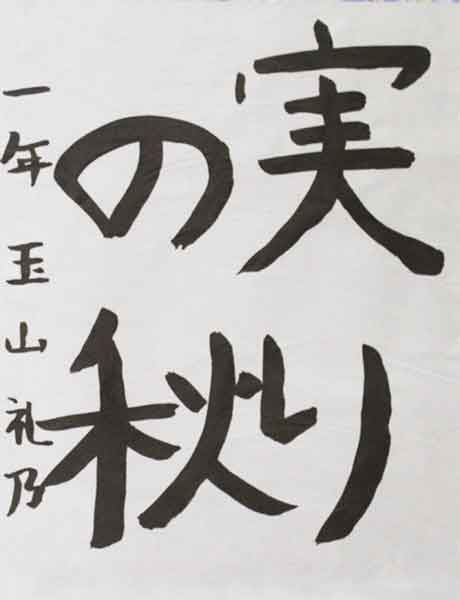 実り
の秋
一年 玉山礼乃